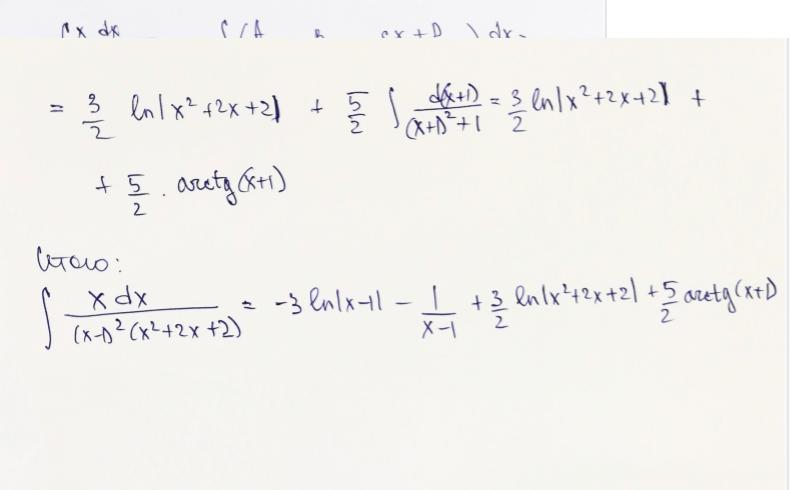 = 3/2 ln|x²+2x+2| + 5/2 ∫ d(x+1)/((x+1)²+1) = 3/2 ln|x²+2x+2| +
+ 5/2 · arctg(x+1)
Итого:
∫ x dx/((x-1)²(x²+2x+2)) = -3 ln|x-1| - 1/(x-1) + 3/2 ln|x²+2x+2| + 5/2 arctg(x+1)